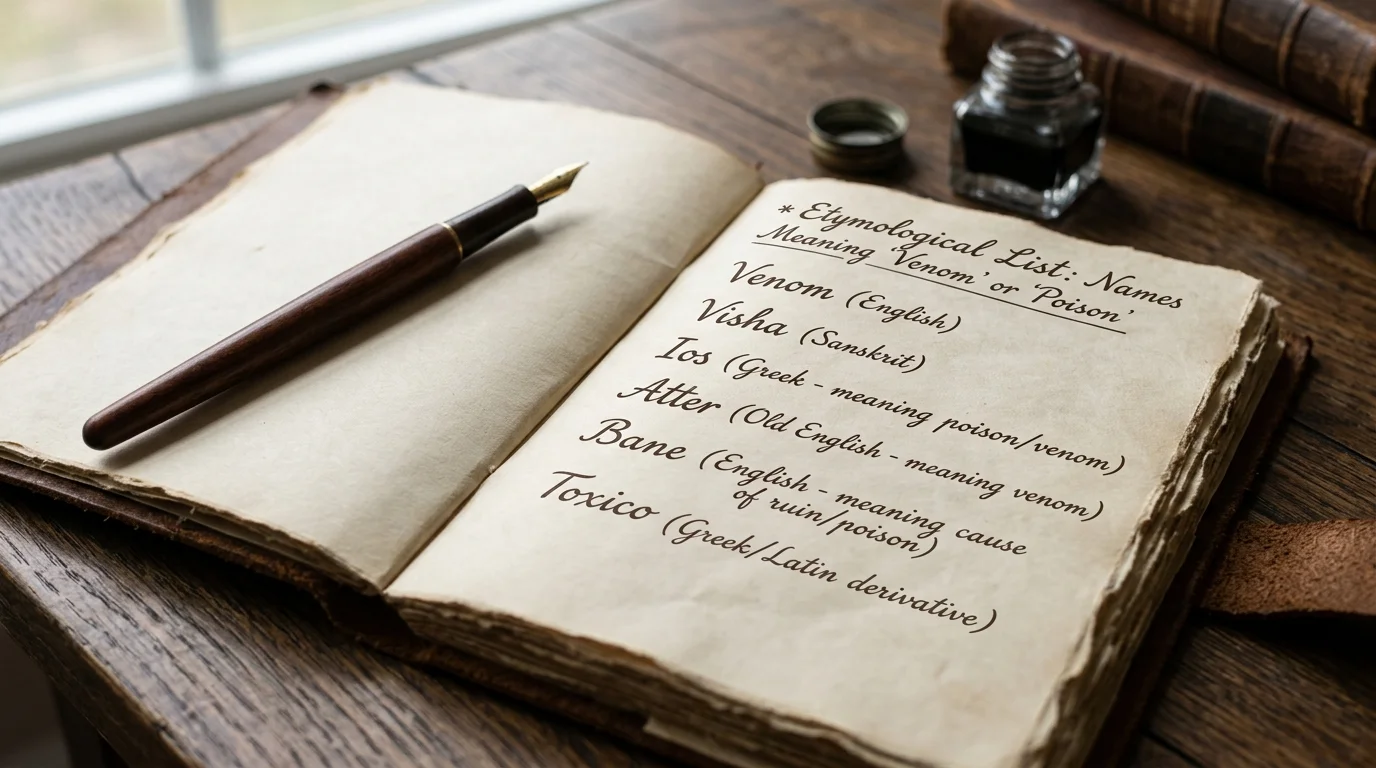 * Etymological List: Names
Meaning 'Venom' or 'Poison'
Venom (English)
Visha (Sanskrit)
Ios (Greek - meaning poison/venom)
Atter (Old English - meaning venom)
Bane (English - meaning cause
of ruin/poison)
Toxico (Greek/Latin derivative)